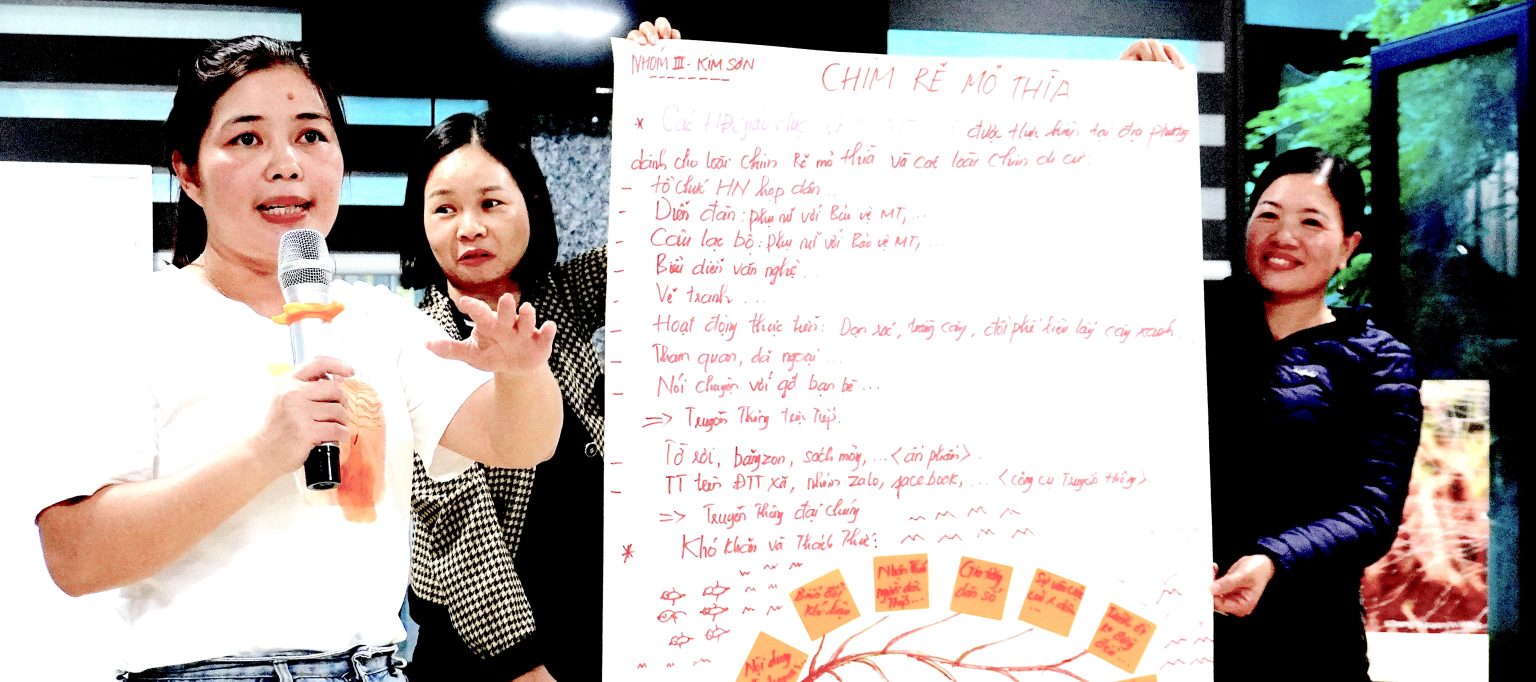 NHÓM III - KIM SƠN
CHIM RẼ MỎ THÌA
* Các HĐ giáo dục được thực hiện tại địa phương
dành cho loài chim Rẽ mỏ thìa và các loài chim di cư:
- tổ chức HN họp dân...
- Diễn đàn: phụ nữ với Bảo vệ MT,...
- Câu lạc bộ: phụ nữ với Bảo vệ MT,...
- Biểu diễn văn nghệ...
- Vẽ tranh ...
- Hoạt động thực tiễn: Dọn rác, trồng cây, đổi phế liệu lấy cây xanh...
- Tham quan, dã ngoại...
- Nói chuyện với gđ bạn bè...
=> Truyền Thông trực Tiếp.
- Tờ rơi, băngzon, sách mỏng, ...<ấn phẩm>.
- TT trên ĐTT xã, nhóm zalo, facebook, ... <công cụ Truyền thông>
=> Truyền Thông đại chúng
* Khó khăn và Thách Thức:
Nội dung
Biến đổi khí hậu
Nhận Thức người dân Thấp...
Gia tăng dân số